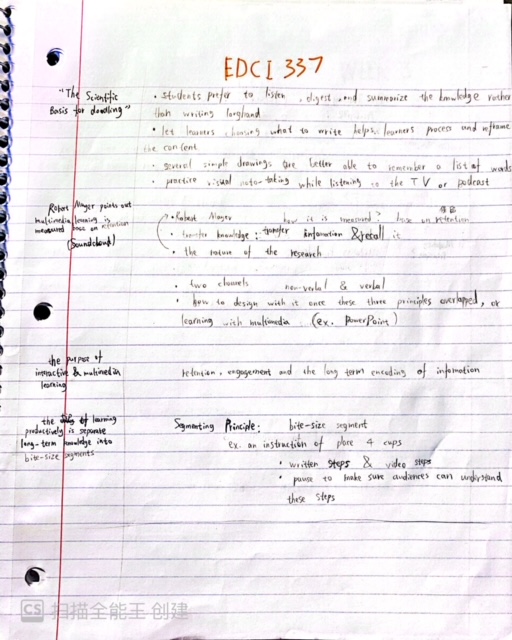 EDCI 337
"The Scientific
Basis for doodling"
• students prefer to listen, digest, and summarize the knowledge rather
than writing longhand
• let learners choosing what to write helps learners process and reframe
the content
• several simple drawings are better able to remember a list of words
• practice visual note-taking while listening to the TV or podcast
Robert Mayer points out
multimedia learning is
measured base on retention
(Soundcloud)
• Robert Mayer how it is measured? base on retention
• transfer knowledge: transfer information & recall it
• the nature of the research
• two channels non-verbal & verbal
• how to design with it once these three principles overlapped, or
learning with multimedia (ex. PowerPoint)
the purpose of
interactive & multimedia
learning
retention, engagement and the long term encoding of information
the of learning
productively is separate
long-term knowledge into
bite-size segments
Segmenting Principle: bite-size segment
ex. an instruction of 4 cups
• written steps & video steps
• pause to make sure audiences can understand
these steps
CS 扫描全能王 创建